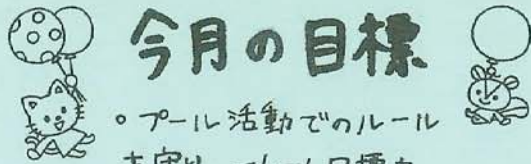 今月の目標
○プール活動でのルール